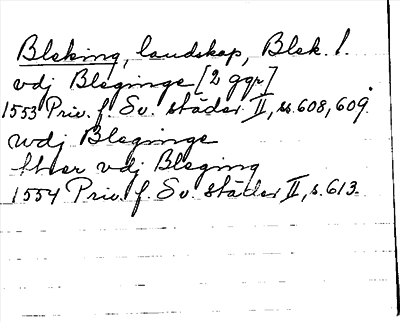 Bleking, landskap, Blek. l.
vdj Bleginge [2 ggr]
1553 Priv. f. Sv. städer II, ss. 608, 609.
wdj Bleginge
vdj Bleging
1554 Priv. f. Sv. städer II, s. 613.